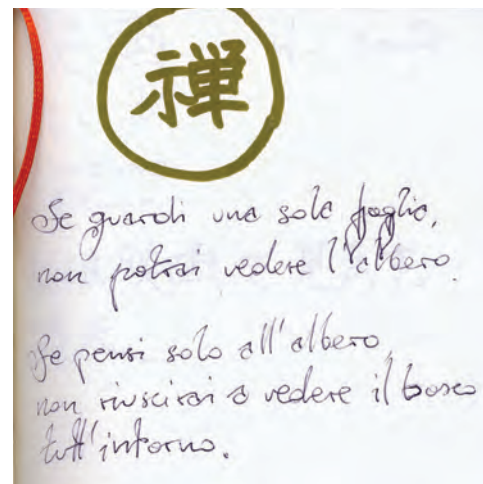 禅
Se guardi una sola foglia,
non potrai vedere l'albero.
Se pensi solo all'albero,
non riuscirai a vedere il bosco
tutt'intorno.